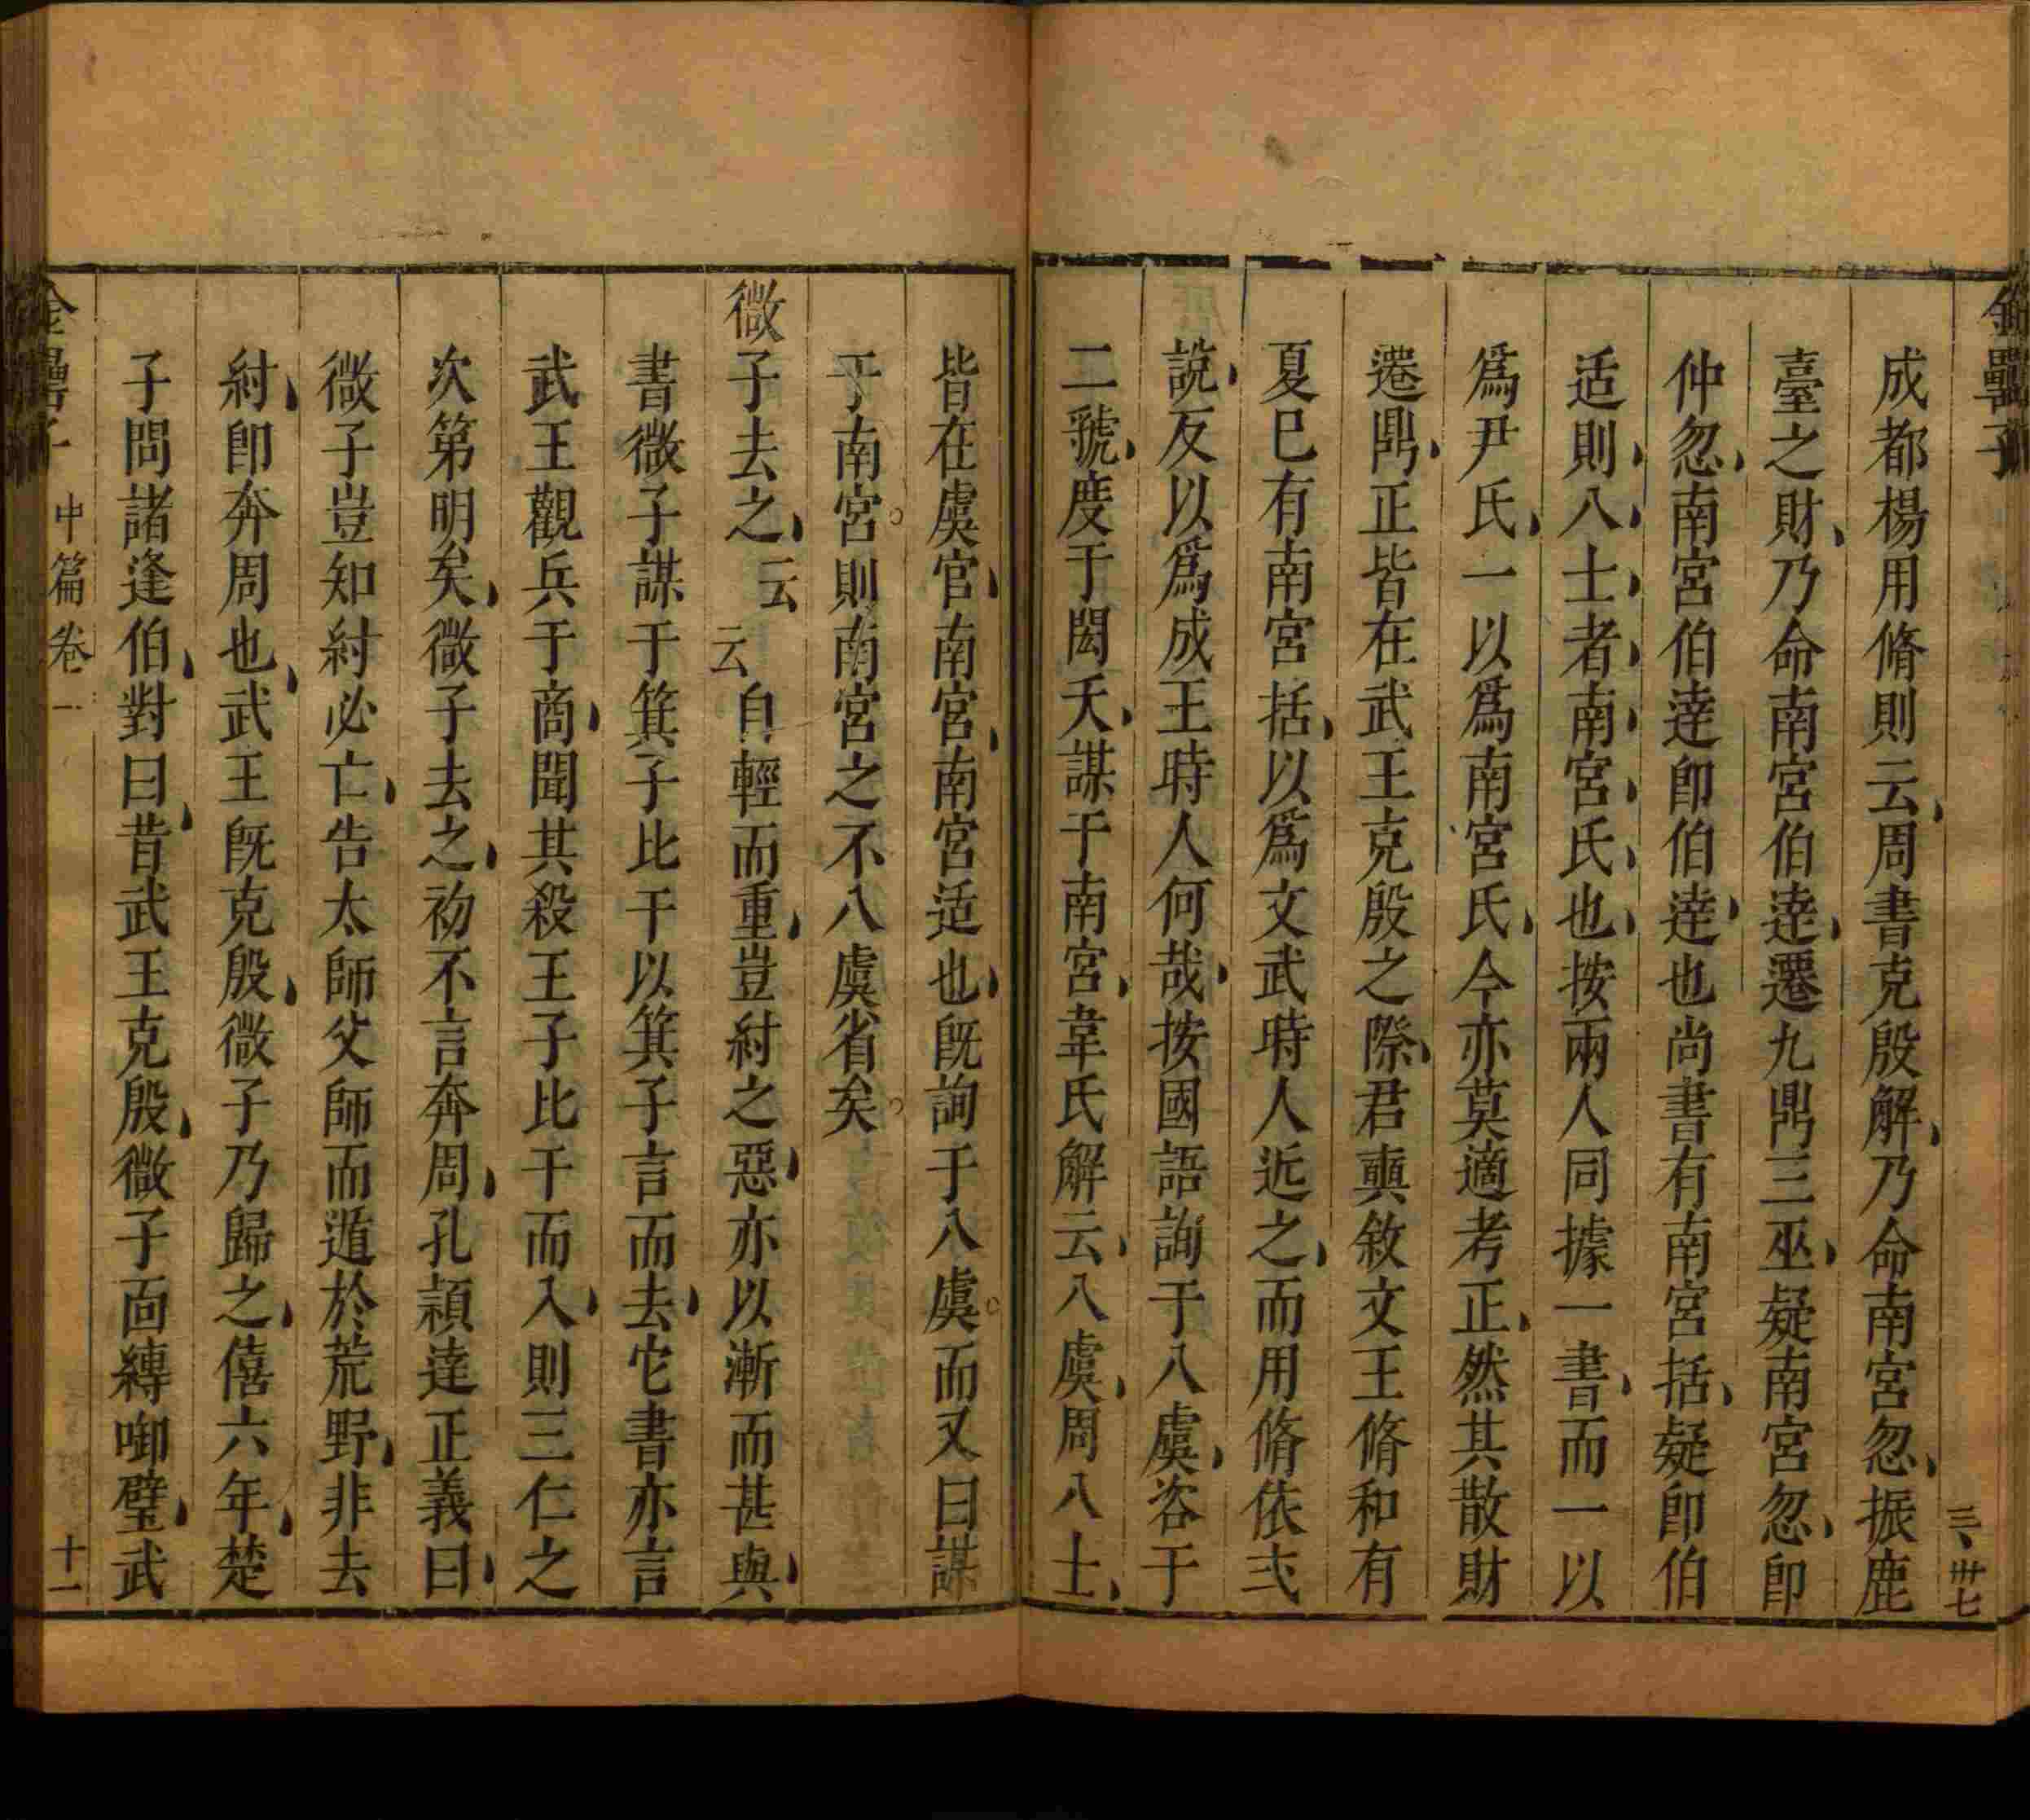 金罍子
三 卅七
成都楊用脩則云周書克殷解乃命南宮忽振鹿
臺之財乃命南宮伯達遷九鼎三巫疑南宮忽即
仲忽南宮伯達即伯達也尚書有南宮括疑即伯
适則八士者南宮氏也按兩人同據一書而一以
爲尹氏一以爲南宮氏今亦莫適考正然其散財
遷鼎正皆在武王克殷之際君奭敘文王脩和有
夏巳有南宮括以爲文武時人近之而用脩依弍
說反以爲成王時人何哉按國語詢于八虞咨于
二虢度于閎夭謀于南宮韋氏解云八虞周八士
皆在虞官南宮南宮适也既詢于八虞而又曰謀
于南宮則南宮之不八虞省矣
微子去之云云自輕而重豈紂之惡亦以漸而甚與
書微子謀于箕子比干以箕子言而去它書亦言
武王觀兵于商聞其殺王子比干而入則三仁之
次第明矣微子去之初不言奔周孔頴達正義曰
微子豈知紂必亡告太師父師而遁於荒野非去
紂即奔周也武王既克殷微子乃歸之僖六年楚
子問諸逢伯對曰昔武王克殷微子面縛啣璧武
金罍子 中篇卷一 十一